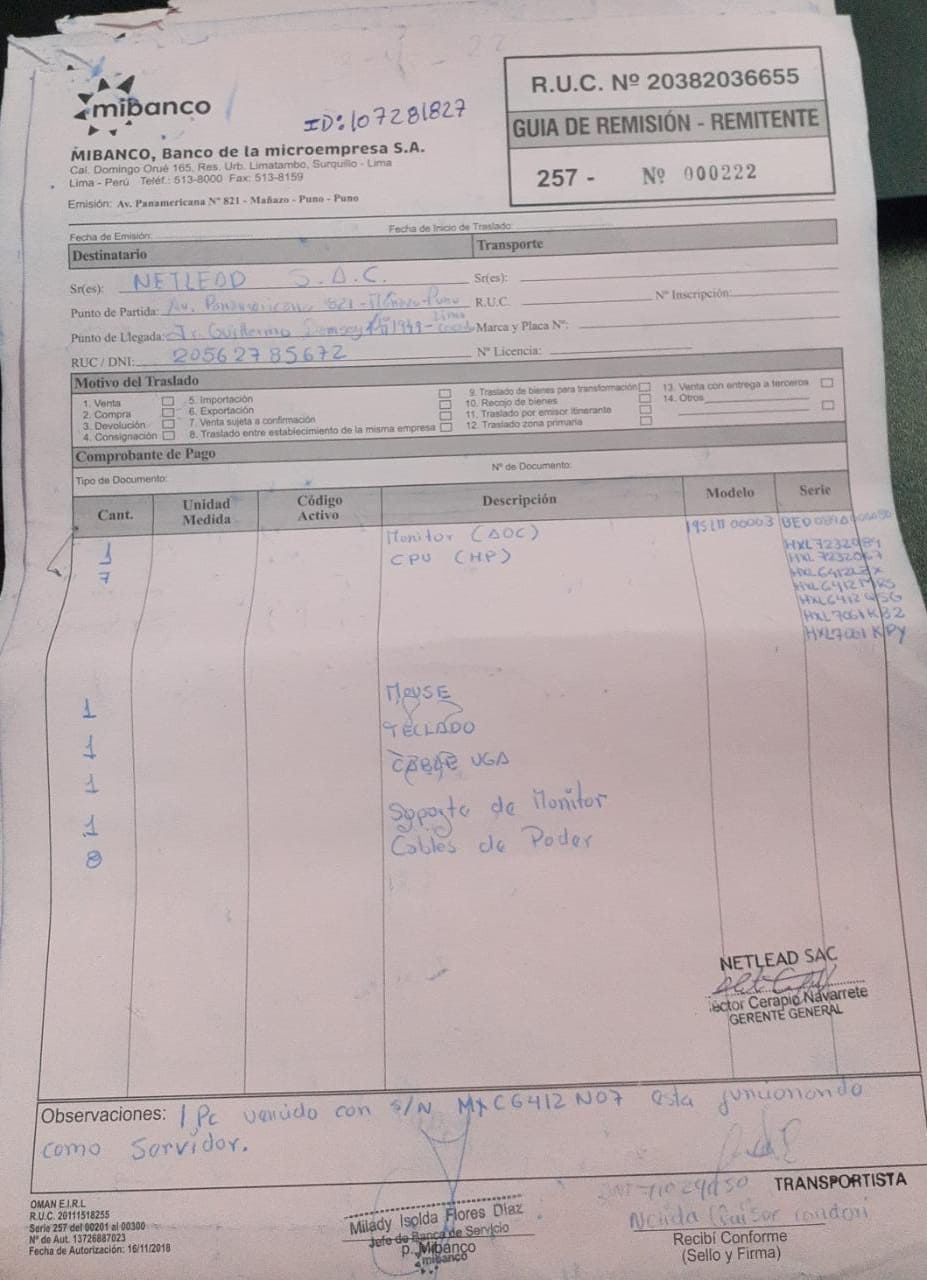 mibanco
ID: 107281827
MIBANCO, Banco de la microempresa S.A.
Cal. Domingo Orué 165, Res. Urb. Limatambo, Surquillo - Lima
Lima - Perú Teléf.: 513-8000 Fax: 513-8159
Emisión: Av. Panamericana Nº 821 - Mañazo - Puno - Puno
R.U.C. Nº 20382036655
GUIA DE REMISIÓN - REMITENTE
257 - Nº 000222
Fecha de Emisión:
Fecha de Inicio de Traslado:
Destinatario
Transporte
Sr(es): NETLEAD S.A.C.
Sr(es):
Punto de Partida: Av. Panamericana 821 - Mañazo - Puno
R.U.C.
Nº Inscripción:
Lima
Punto de Llegada: Jr. Guillermo 1949 -
Marca y Placa Nº:
RUC / DNI: 20562785672
Nº Licencia:
Motivo del Traslado
1. Venta
2. Compra
3. Devolución
4. Consignación
5. Importación
6. Exportación
7. Venta sujeta a confirmación
8. Traslado entre establecimiento de la misma empresa
9. Traslado de bienes para transformación
10. Recojo de bienes
11. Traslado por emisor itinerante
12. Traslado zona primaria
13. Venta con entrega a terceros
14. Otros
Comprobante de Pago
Tipo de Documento:
Nº de Documento:
Cant. Unidad Medida Código Activo Descripción Modelo Serie
1 Monitor (AOC)
7 CPU (HP)
HXL7232084
HXL7232067
HXL6412MRS
HXL6412QSG
HXL7061KB2
HXL7061KPY
1 MOUSE
1 TECLADO
1 CABLE VGA
1 Soporte de Monitor
8 Cables de Poder
NETLEAD SAC
éctor Cerapio Navarrete
GERENTE GENERAL
Observaciones: 1 Pc venido con S/N MXC6412N07 esta funcionando
como Servidor.
OMAN E.I.R.L
R.U.C. 20111518255
Serie 257 del 00201 al 00300
Nº de Aut. 13726887023
Fecha de Autorización: 16/11/2018
Milady Isolda Flores Diaz
Jefe de Banca de Servicio
p. Mibanco
mibanco
TRANSPORTISTA
Recibí Conforme
(Sello y Firma)